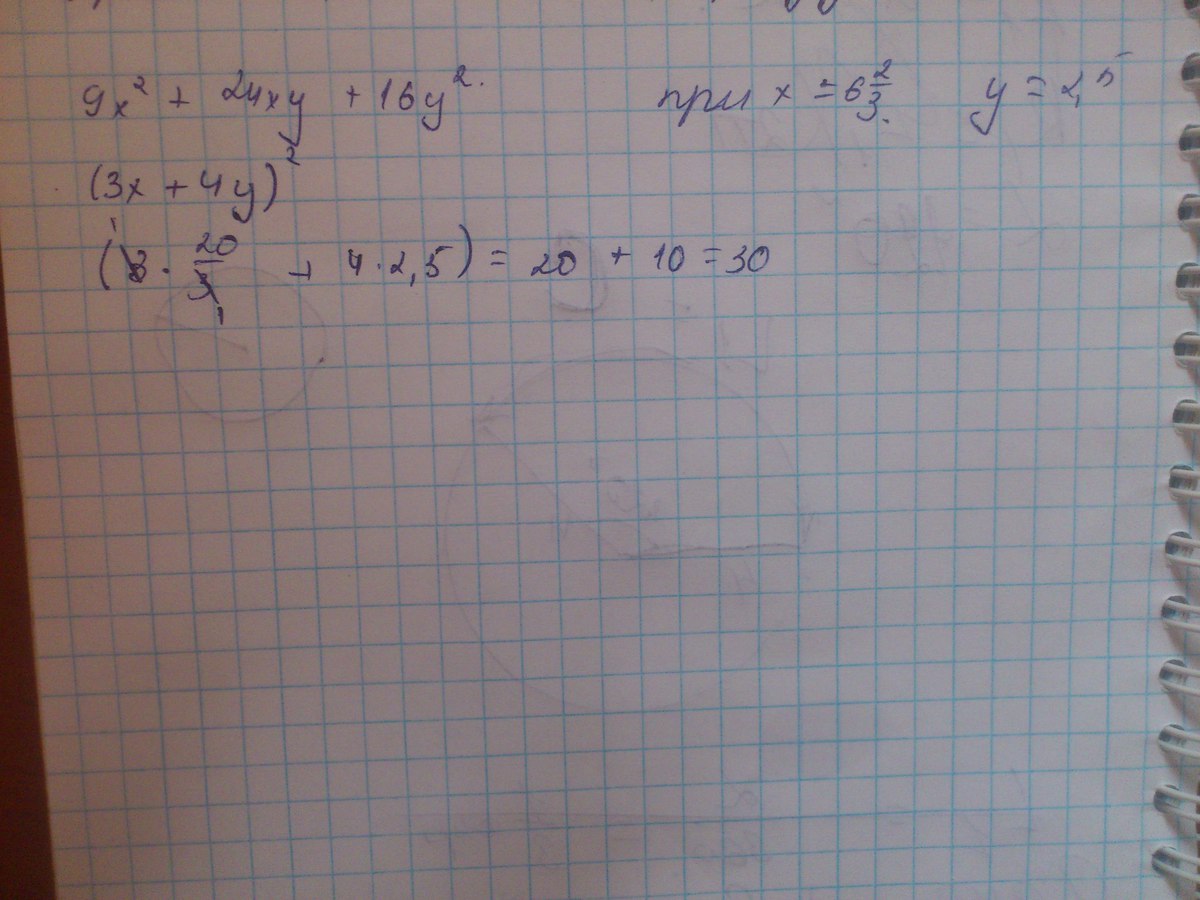 9x² + 24xy + 16y². при x = 6 2/3. y = 2,5
(3x + 4y)²
(3 · 20/3 + 4 · 2,5) = 20 + 10 = 30